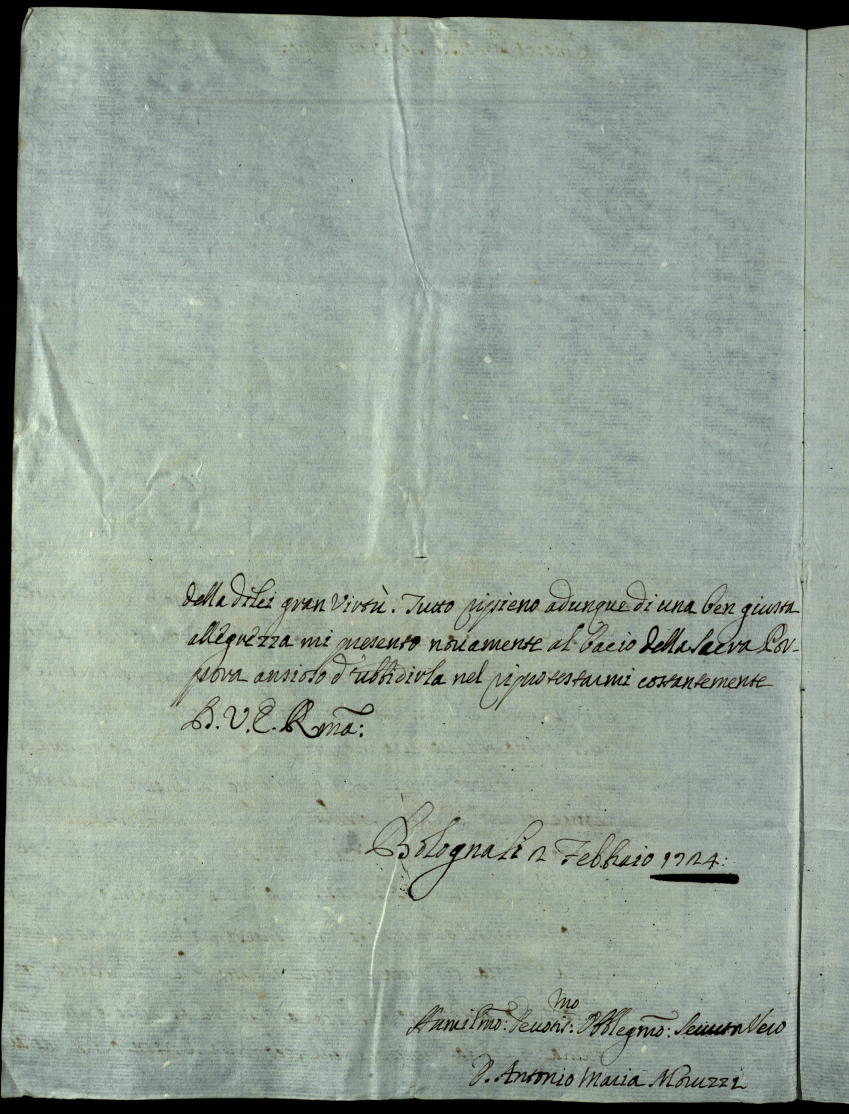 della di lei gran Virtù. Tutto ripieno adunque di una ben giusta
allegrezza mi presento novamente al bacio della Sacra Por-
pora ansioso d'ubbidirla nel riprotestarmi costantemente
D. V. E. Rma:
Bologna li 2 Febbraio 1724:
Humilmo: Devotis:mo Obblegmo: Servitor Vero
D. Antonio Maria Moruzzi